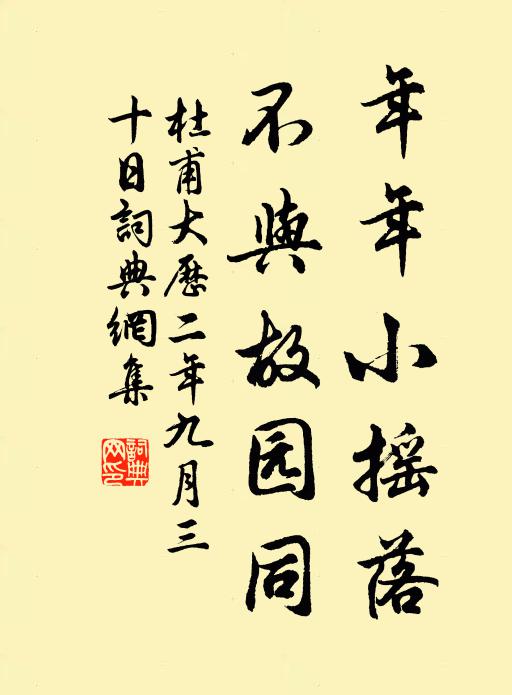 年年小摇落
不與故园同
杜甫大歷二年九月三
十日詞典網集
詞典網印